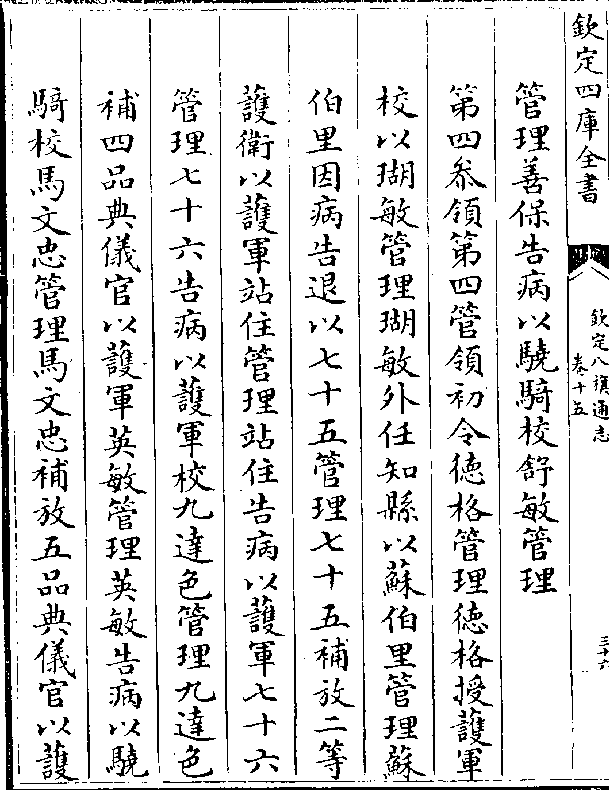 欽定四庫全書
欽定八旗通志
卷十五
三十六
管理善保告病以驍騎校舒敏管理
第四叅領第四管領初令德格管理德格授護軍
校以瑚敏管理瑚敏外任知縣以蘇伯里管理蘇
伯里因病告退以七十五管理七十五補放二等
護衛以護軍站住管理站住告病以護軍七十六
管理七十六告病以護軍校九達色管理九達色
補四品典儀官以護軍英敏管理英敏告病以驍
騎校馬文忠管理馬文忠補放五品典儀官以護